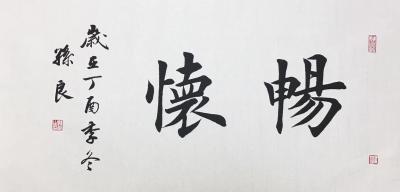 暢懷
歲在丁酉季冬
孫良